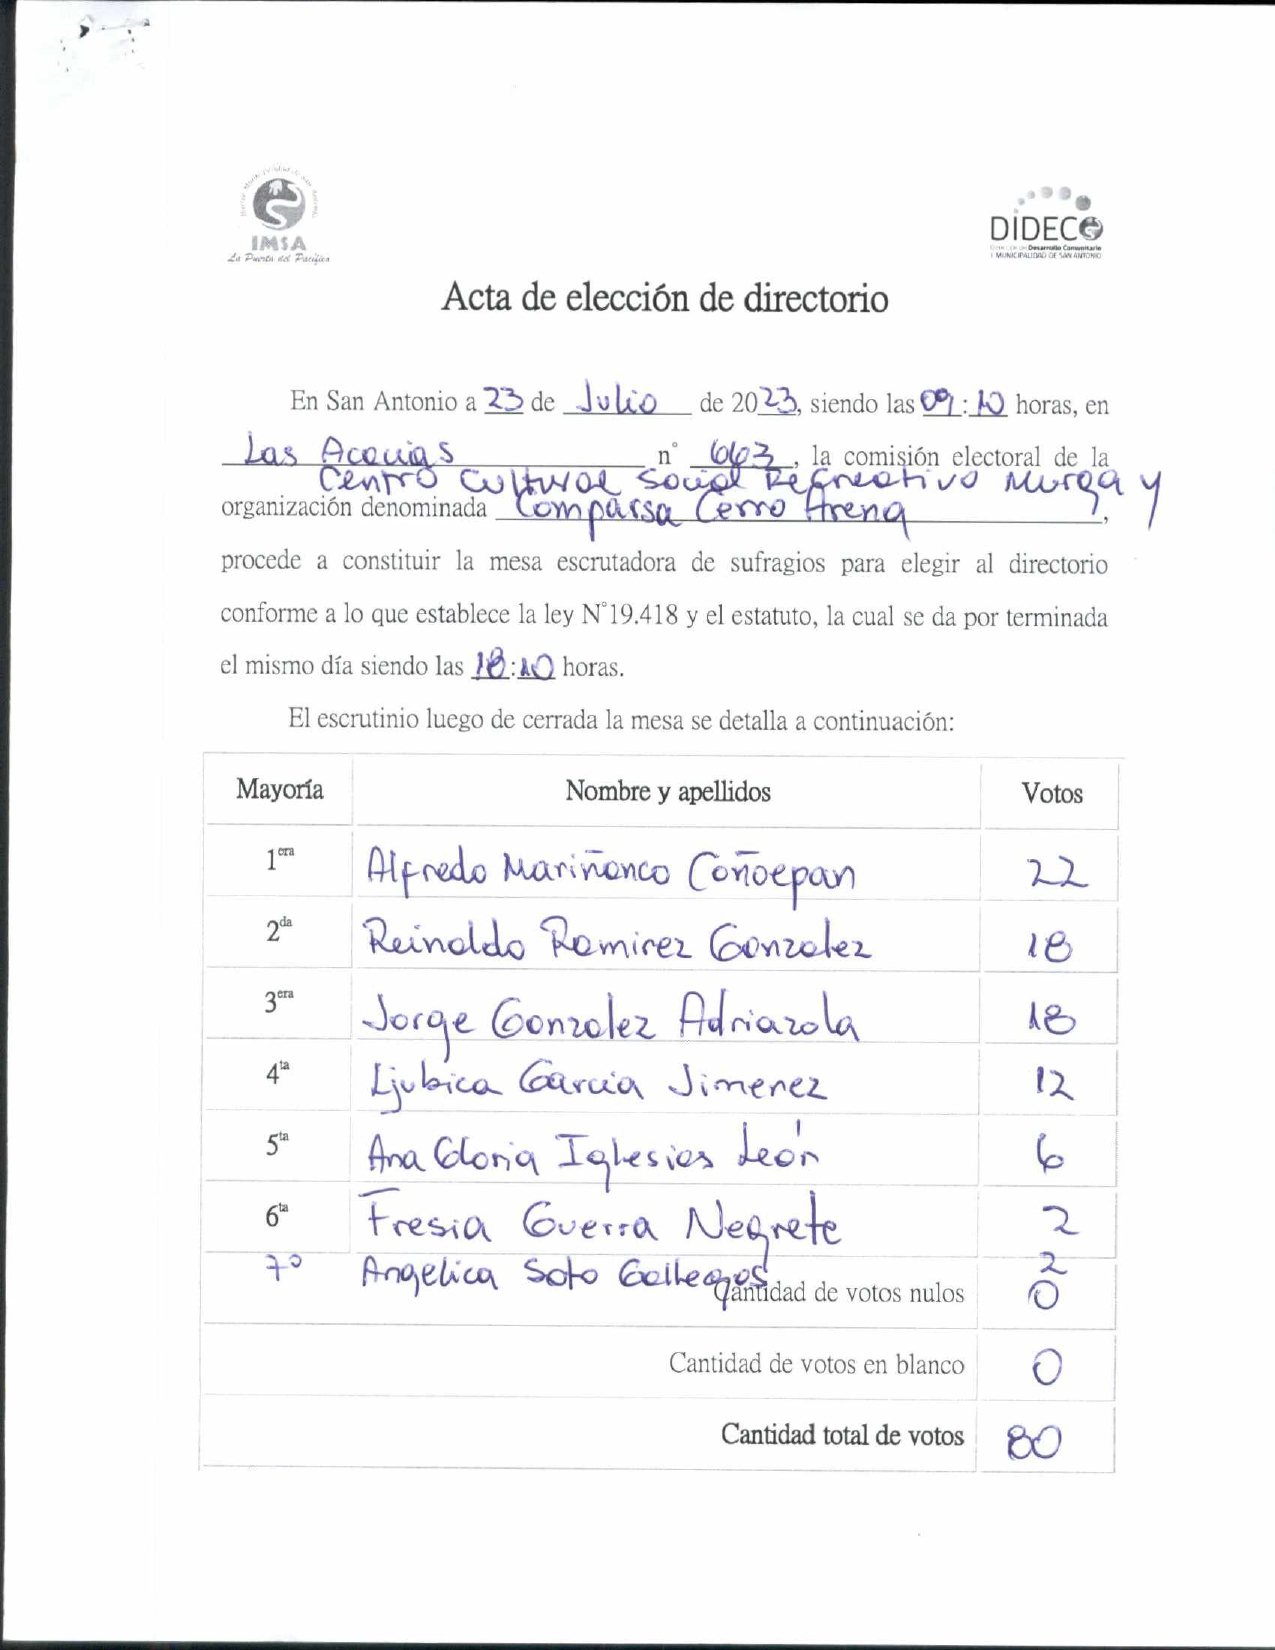 IMSA
La Puerta del Pacífico
DIDECO
Desarrollo Comunitario
I MUNICIPALIDAD DE SAN ANTONIO
Acta de elección de directorio
En San Antonio a 23 de Julio de 2023, siendo las 09:10 horas, en
Las Acacias n° 663, la comisión electoral de la
Centro Cultural Social Recreativo Murga y
organización denominada Comparsa Cerro Arena,
procede a constituir la mesa escrutadora de sufragios para elegir al directorio
conforme a lo que establece la ley N°19.418 y el estatuto, la cual se da por terminada
el mismo día siendo las 18:10 horas.
El escrutinio luego de cerrada la mesa se detalla a continuación:
Mayoría Nombre y apellidos Votos
1era Alfredo Mariñanco Coñoepan 22
2da Reinaldo Ramirez Gonzalez 18
3era Jorge Gonzalez Adriazola 18
4ta Ljubica Garcia Jimenez 12
5ta Ana Gloria Iglesias León 6
6ta Fresia Guerra Negrete 2
7° Angelica Soto Gallegos 2
Cantidad de votos nulos 0
Cantidad de votos en blanco 0
Cantidad total de votos 80